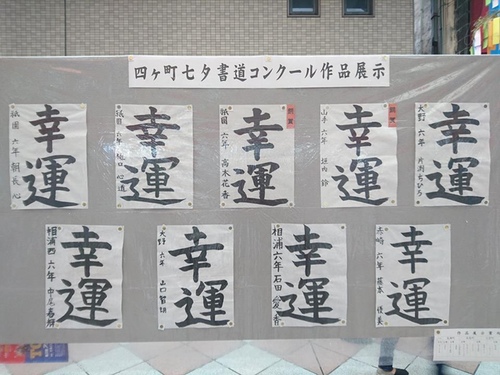 四ヶ町七夕書道コンクール作品展示
幸運
祇園 六年 朝長 心
幸運
祇園 六年 心道
幸運
祇園 六年 高木花香
幸運
山手 六年 垣内 鈴
幸運
大野 六年 片渕ちひろ
幸運
相浦西 六年 中尾
幸運
大野 六年 山口
幸運
相浦 六年 石田 愛香
幸運
赤崎 六年 藤本 優美